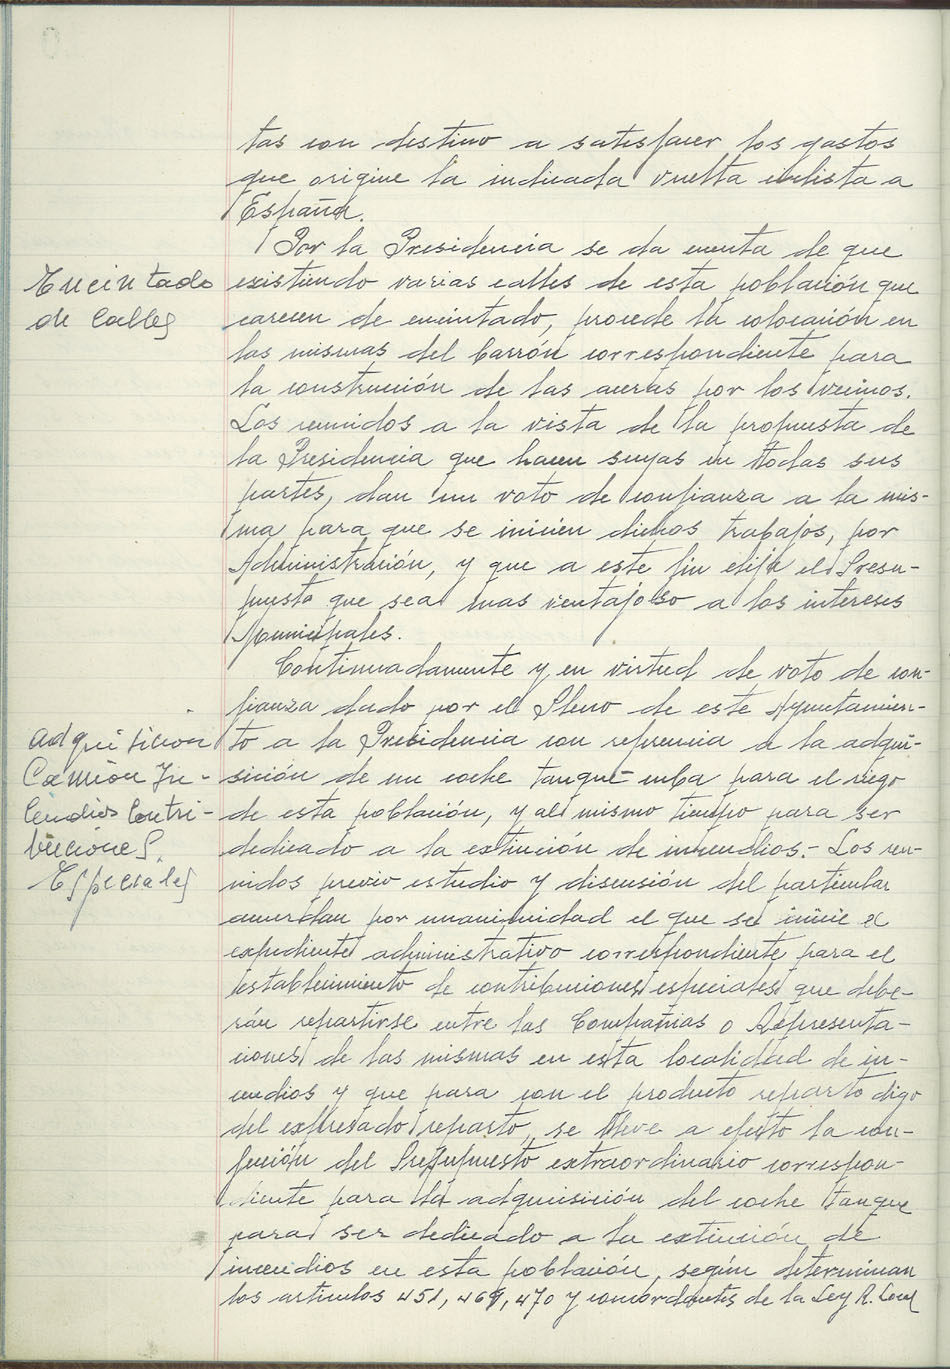 tas con destino a satisfacer los gastos
que origine la indicada vuelta ciclista a
España.
Por la Presidencia se da cuenta de que
Encintado
de Calles
existiendo varias calles de esta población que
carecen de encintado, procede la colocación en
las mismas del barrón correspondiente para
la construcción de las aceras por los vecinos.
Los reunidos a la vista de la propuesta de
la Presidencia que hacen suyas en todas sus
partes, dan un voto de confianza a la mis-
ma para que se inicien dichos trabajos, por
Administración, y que a este fin elija el Presu-
puesto que sea mas ventajoso a los intereses
Municipales.
Continuadamente y en virtud de voto de con-
fianza dado por el Pleno de este Ayuntamien-
adquisicion
Camión In-
cendios Contri-
buciones
Especiales
to a la Presidencia con referencia a la adqui-
sición de un coche tanque-cuba para el riego
de esta población, y al mismo tiempo para ser
dedicado a la extinción de incendios.- Los reu-
nidos previo estudio y discusión del particular
acuerdan por unanimidad el que se inicie el
expediente administrativo correspondiente para el
establecimiento de contribuciones especiales que debe-
rán repartirse entre las Compañias o Representa-
ciones de las mismas en esta localidad de in-
cendios y que para con el producto reparto digo
del expresado reparto, se lleve a efecto la con-
fección del Presupuesto extraordinario correspon-
diente para la adquisición del coche tanque
para ser dedicado a la extinción de
incendios en esta población, según determinan
los articulos 451, 469, 470 y concordantes de la Ley R. Local